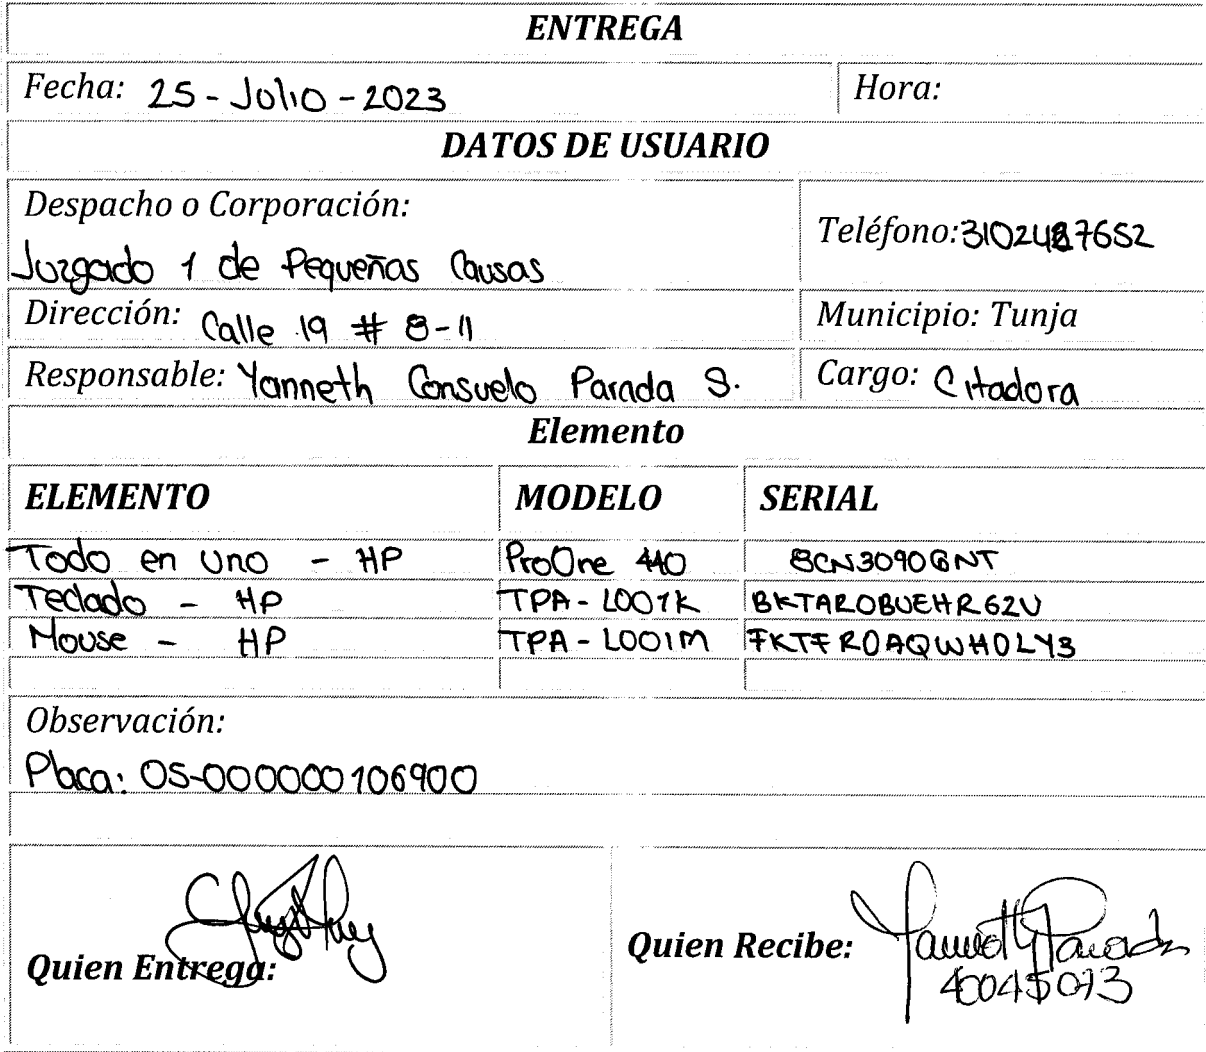 ENTREGA
Fecha: 25 - Julio - 2023
Hora:
DATOS DE USUARIO
Despacho o Corporación:
Juzgado 1 de Pequeñas Causas
Teléfono: 3102487652
Dirección: Calle 19 # 8-11
Municipio: Tunja
Responsable: Yanneth Consuelo Parada S.
Cargo: Citadora
Elemento
ELEMENTO MODELO SERIAL
Todo en uno - HP ProOne 440 8CN3090GNT
Teclado - HP TPA-L001K BKTAROBUEHR62U
Mouse - HP TPA-L001M FKTFR0AQWH0LY3
Observación:
Placa: OS-000000106900
Quien Entrega:
Quien Recibe: Yanneth Parada
40045073